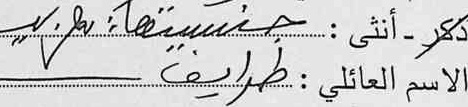 ذكر - أنثى : جنسيتها :
الاسم العائلي : طرايف